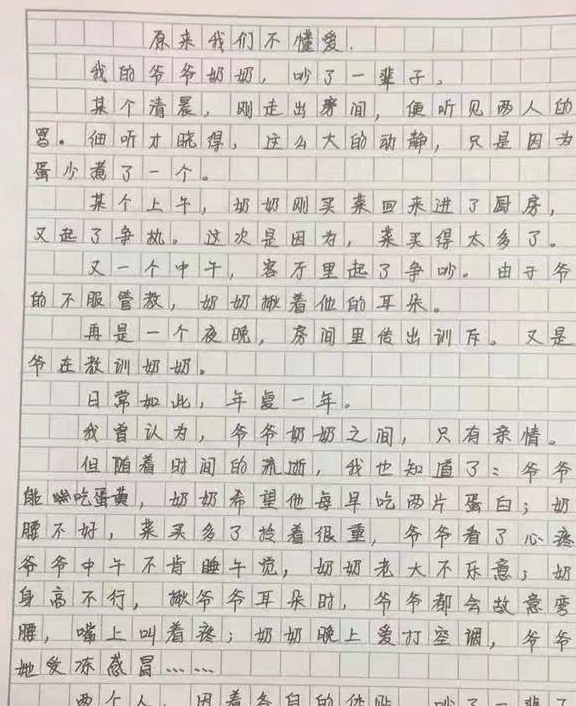 原来我们不懂爱.
我的爷爷奶奶，吵了一辈子。
某个清晨，刚走出房间，便听见两人的
骂。细听才晓得，这么大的动静，只是因为
蛋少煮了一个。
某个上午，奶奶刚买菜回来进了厨房，
又起了争执。这次是因为，菜买得太多了。
又一个中午，客厅里起了争吵。由于爷
的不服管教，奶奶揪着他的耳朵。
再是一个夜晚，房间里传出训斥。又是
爷在教训奶奶。
日常如此，年复一年。
我曾认为，爷爷奶奶之间，只有亲情。
但随着时间的流逝，我也知道了：爷爷
能吃蛋黄，奶奶希望他每早吃两片蛋白；奶
腰不好，菜买多了拎着很重，爷爷看了心疼
爷爷中午不肯睡午觉，奶奶老大不乐意；奶
身高不行，揪爷爷耳朵时，爷爷都会故意弯
腰，嘴上叫着疼；奶奶晚上爱打空调，爷爷
她受冻感冒……
两个人，因着各自的体贴，吵了一辈子